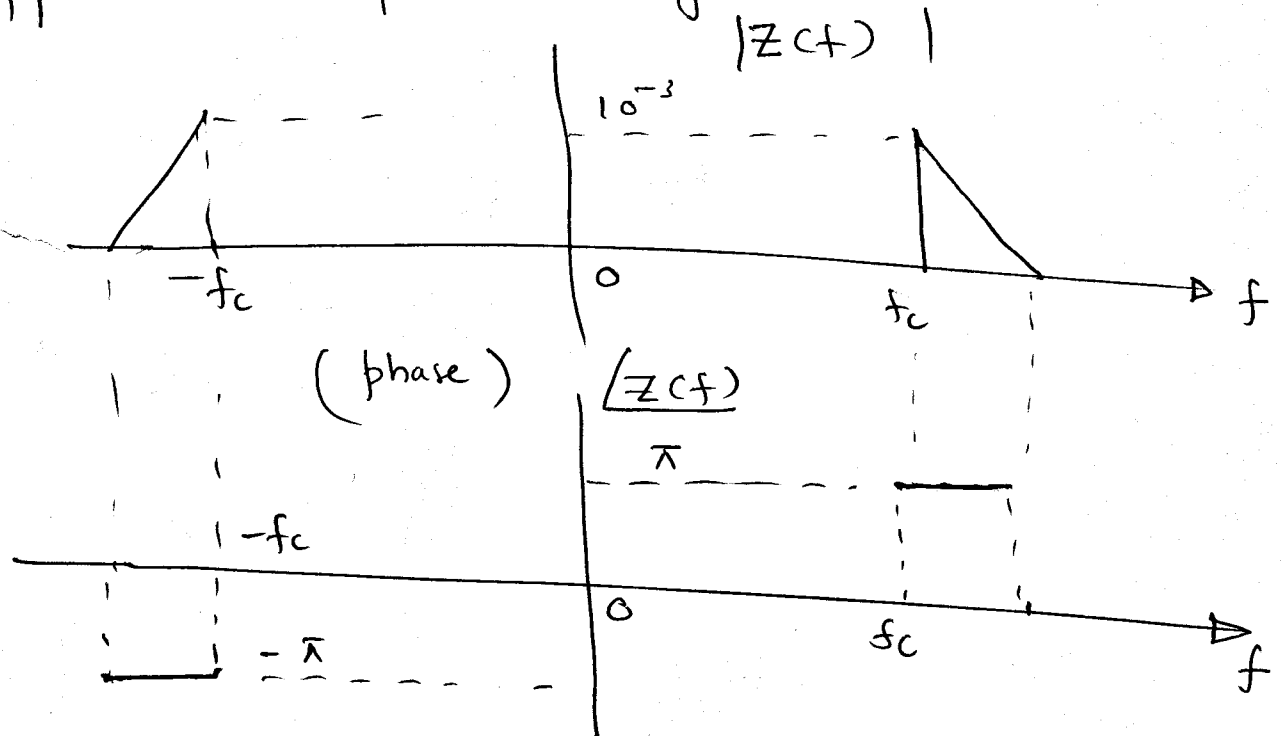 |Z(f)|
10⁻³
-fc
0
fc
f
(phase) /Z(f)
π
-fc
0
fc
f
-π